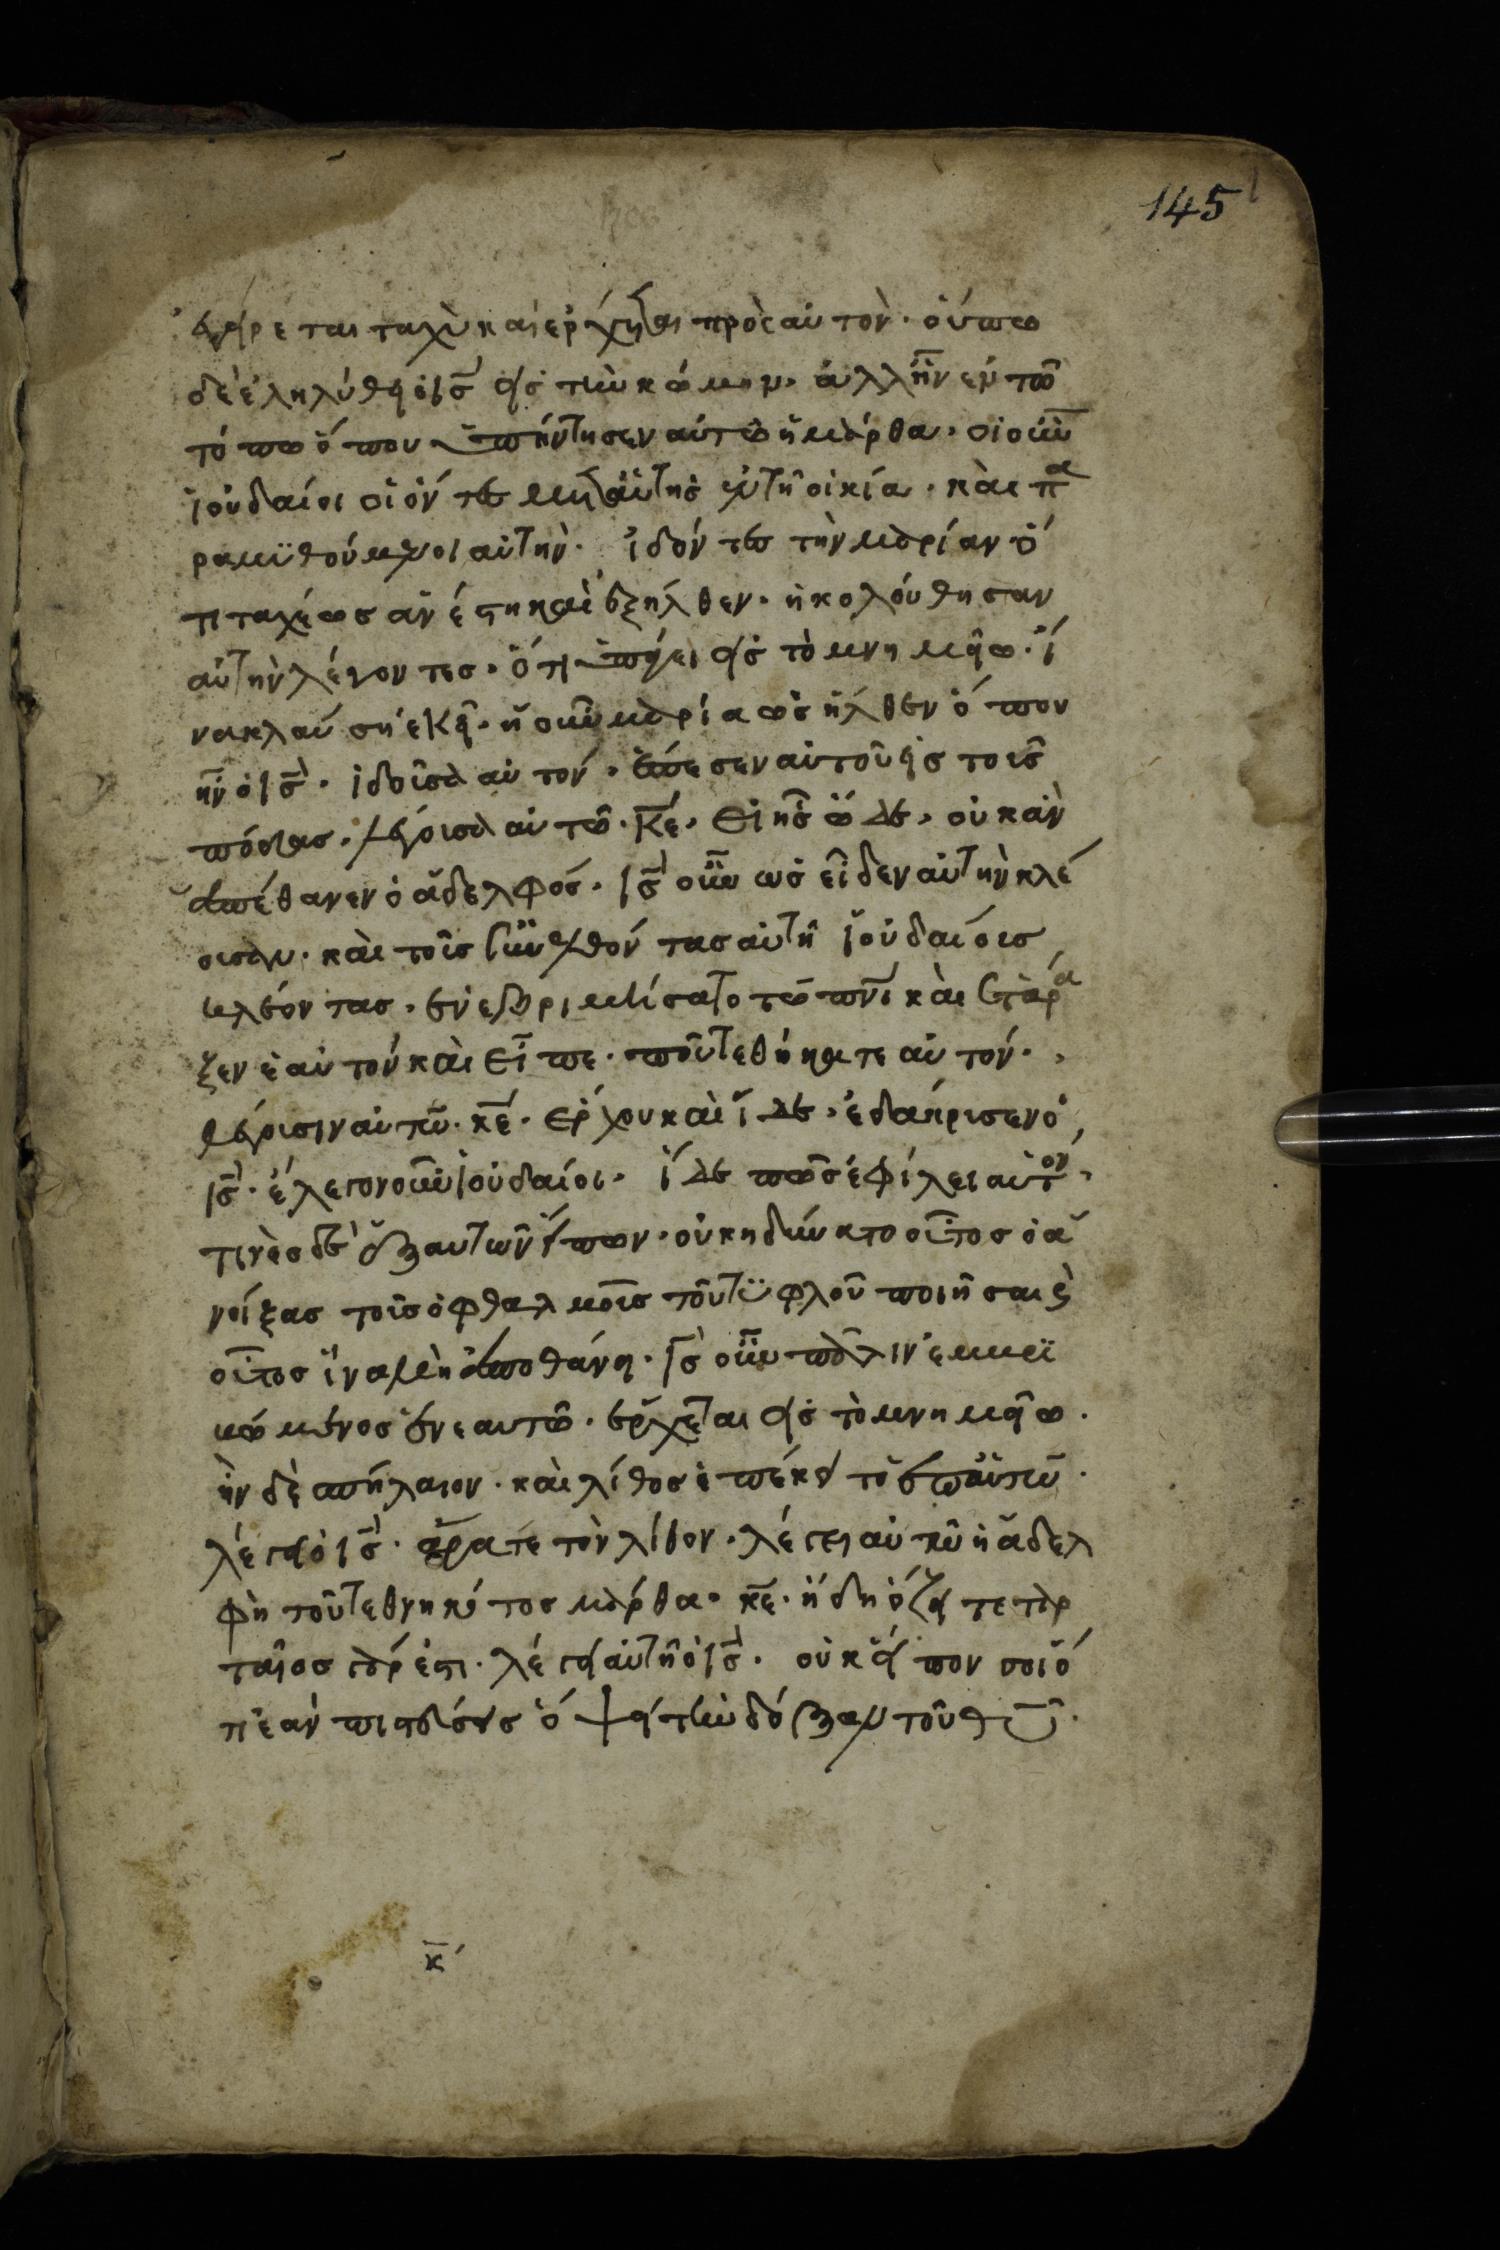 145
ἐγείρεται ταχὺ καὶ ἔρχεται πρὸς αὐτὸν· οὔπω
δὲ ἐληλύθει ὁ ις̅ εἰς τὴν κώμην· ἀλλ ἦν ἐν τῶ
τόπω ὅπου ὑπήντησεν αὐτῶ ἡ μάρθα· οἱ οὖν
ἰουδαίοι οἱ ὄντες μετ αὐτῆς ἐν τῆ οἰκία· καὶ πα
ραμυθούμενοι αὐτὴν· ἰδόντες τὴν μαρίαν ὅ
τι ταχέως ἀνέστη καὶ ἐξῆλθεν· ἠκολούθησαν
αὐτὴν λέγοντες· ὅτι ὑπάγει εἰς τὸ μνημεῖω· ἵ
να κλαύση ἐκεῖ· ἡ οὖν μαρία ὡς ἦλθεν ὅπου
ἦν ὁ ις̅· ἰδοῦσα αὐτόν· ἔπεσεν αὐτοῦ εἰς τοὺς
πόδας· λέγουσα αὐτῶ· κε̅· εἰ ἦς ὧδε· οὐκ ἂν
ἀπέθανεν ὁ ἀδελφός· ις̅ οὖν ὡς εἶδεν αὐτὴν κλέ
ουσαν· καὶ τοὺς συνελθόντας αὐτῆ ἰουδαίους
κλέοντας· ἐνεβριμήσατο τῶ πνι̅ καὶ ἐτάρα
ξεν ἑαυτόν καὶ εἶπε· ποῦ τεθήκατε αὐτόν·
λέγουσιν αὐτῶ· κε̅· ἔρχου καὶ ἴδε· ἐδάκρισεν ὁ
ις̅· ἔλεγον οὖν ἰουδαίοι· ἴδε πῶς ἐφίλει αὐτὸν·
τινὲς δὲ ἐξ αὐτῶν εἶπον· οὐκ ηδύνατο οὗτος ὁ ἀ
νοίξας τοὺς ὀφθαλμοὺς τοῦ τυφλοῦ ποιῆσαι κ
οὗτος ἵνα μὴ ἀποθάνη· ις̅ οὖν πάλιν ἐμμϊ
κώμενος ἐν ἑαυτῶ· ἔρχεται εἰς τὸ μνημεῖω·
ἦν δὲ σπήλαιον· καὶ λίθος ἐπέκειτο ἐπ αὐτῶ·
λέγει ὁ ις̅· ἄρατε τὸν λίθον· λέγει αὐτῶ ἡ ἀδελ
φὴ τοῦ τεθνηκότος μάρθα· κε̅· ἤδη ὄζει τεταρ
ταῖος γάρ ἐστι· λέγει αὐτῆ ὁ ις̅· οὐκ εἶπον σοι ὅ
τι ἐὰν πιστεύσεις ὄψει τὴν δόξαν τοῦ θυ̅·
κ̅